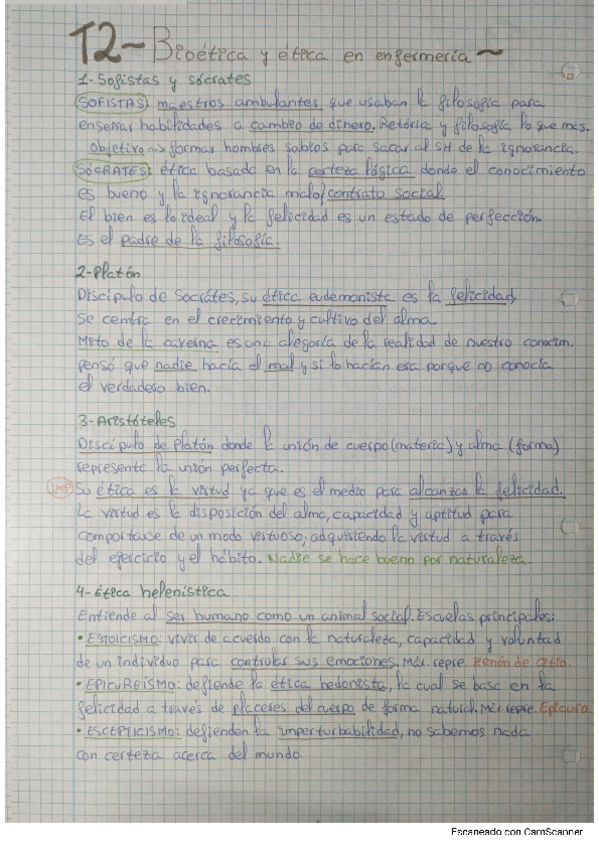 T2~ Bioética y ética en enfermería ~
1- Sofistas y sócrates
SOFISTAS: maestros ambulantes que usaban la filosofía para
enseñar habilidades a cambio de dinero. Retórica y filosofía lo que más.
Objetivo ~> formar hombres sabios para sacar al SH de la ignorancia.
SÓCRATES: ética basada en la certeza lógica donde el conocimiento
es bueno y la ignorancia malo/contrato social
El bien es lo ideal y la felicidad es un estado de perfección.
Es el padre de la filosofía.
2- Platón
Discípulo de Socrátes, su ética eudemonista es la felicidad,
se centra en el crecimiento y cultivo del alma.
Mito de la caverna es una alegoría de la realidad de nuestro conocim.
pensó que nadie hacía el mal y si lo hacían era porque no conocía
el verdadero bien.
3- Aristóteles
Discípulo de Platón donde la unión de cuerpo (materia) y alma (forma)
representa la unión perfecta.
Su ética es la virtud ya que es el medio para alcanzar la felicidad.
La virtud es la disposición del alma, capacidad y aptitud para
comportarse de un modo virtuoso; adquiriendo la virtud a través
del ejercicio y el hábito. Nadie se hace bueno por naturaleza.
4- ética helenística
Entiende al ser humano como un animal social. Escuelas principales:
• ESTOICISMO: vivir de acuerdo con la naturaleza, capacidad y voluntad
de un individuo para controlar sus emociones. Máx. repre. Zenón de Citio.
• EPICUREÍSMO: defiende la ética hedonista, la cual se basa en la
felicidad a través de placeres del cuerpo de forma natural. Máx repre. Epicuro.
• ESCEPTICISMO: defienden la imperturbabilidad, no sabemos nada
con certeza acerca del mundo.
Escaneado con CamScanner